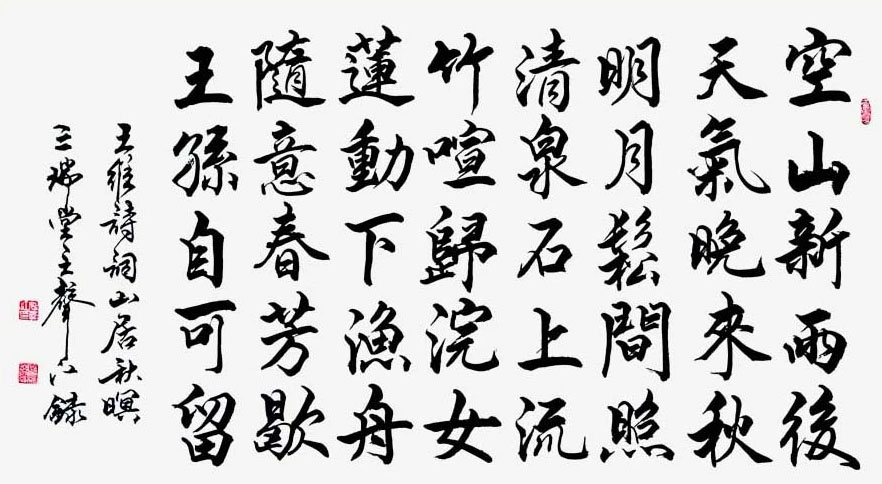 空山新雨後
天氣晚來秋
明月鬆間照
清泉石上流
竹喧歸浣女
蓮動下漁舟
隨意春芳歇
王孫自可留
王維詩詞山居秋暝
三 堂主聲 錄